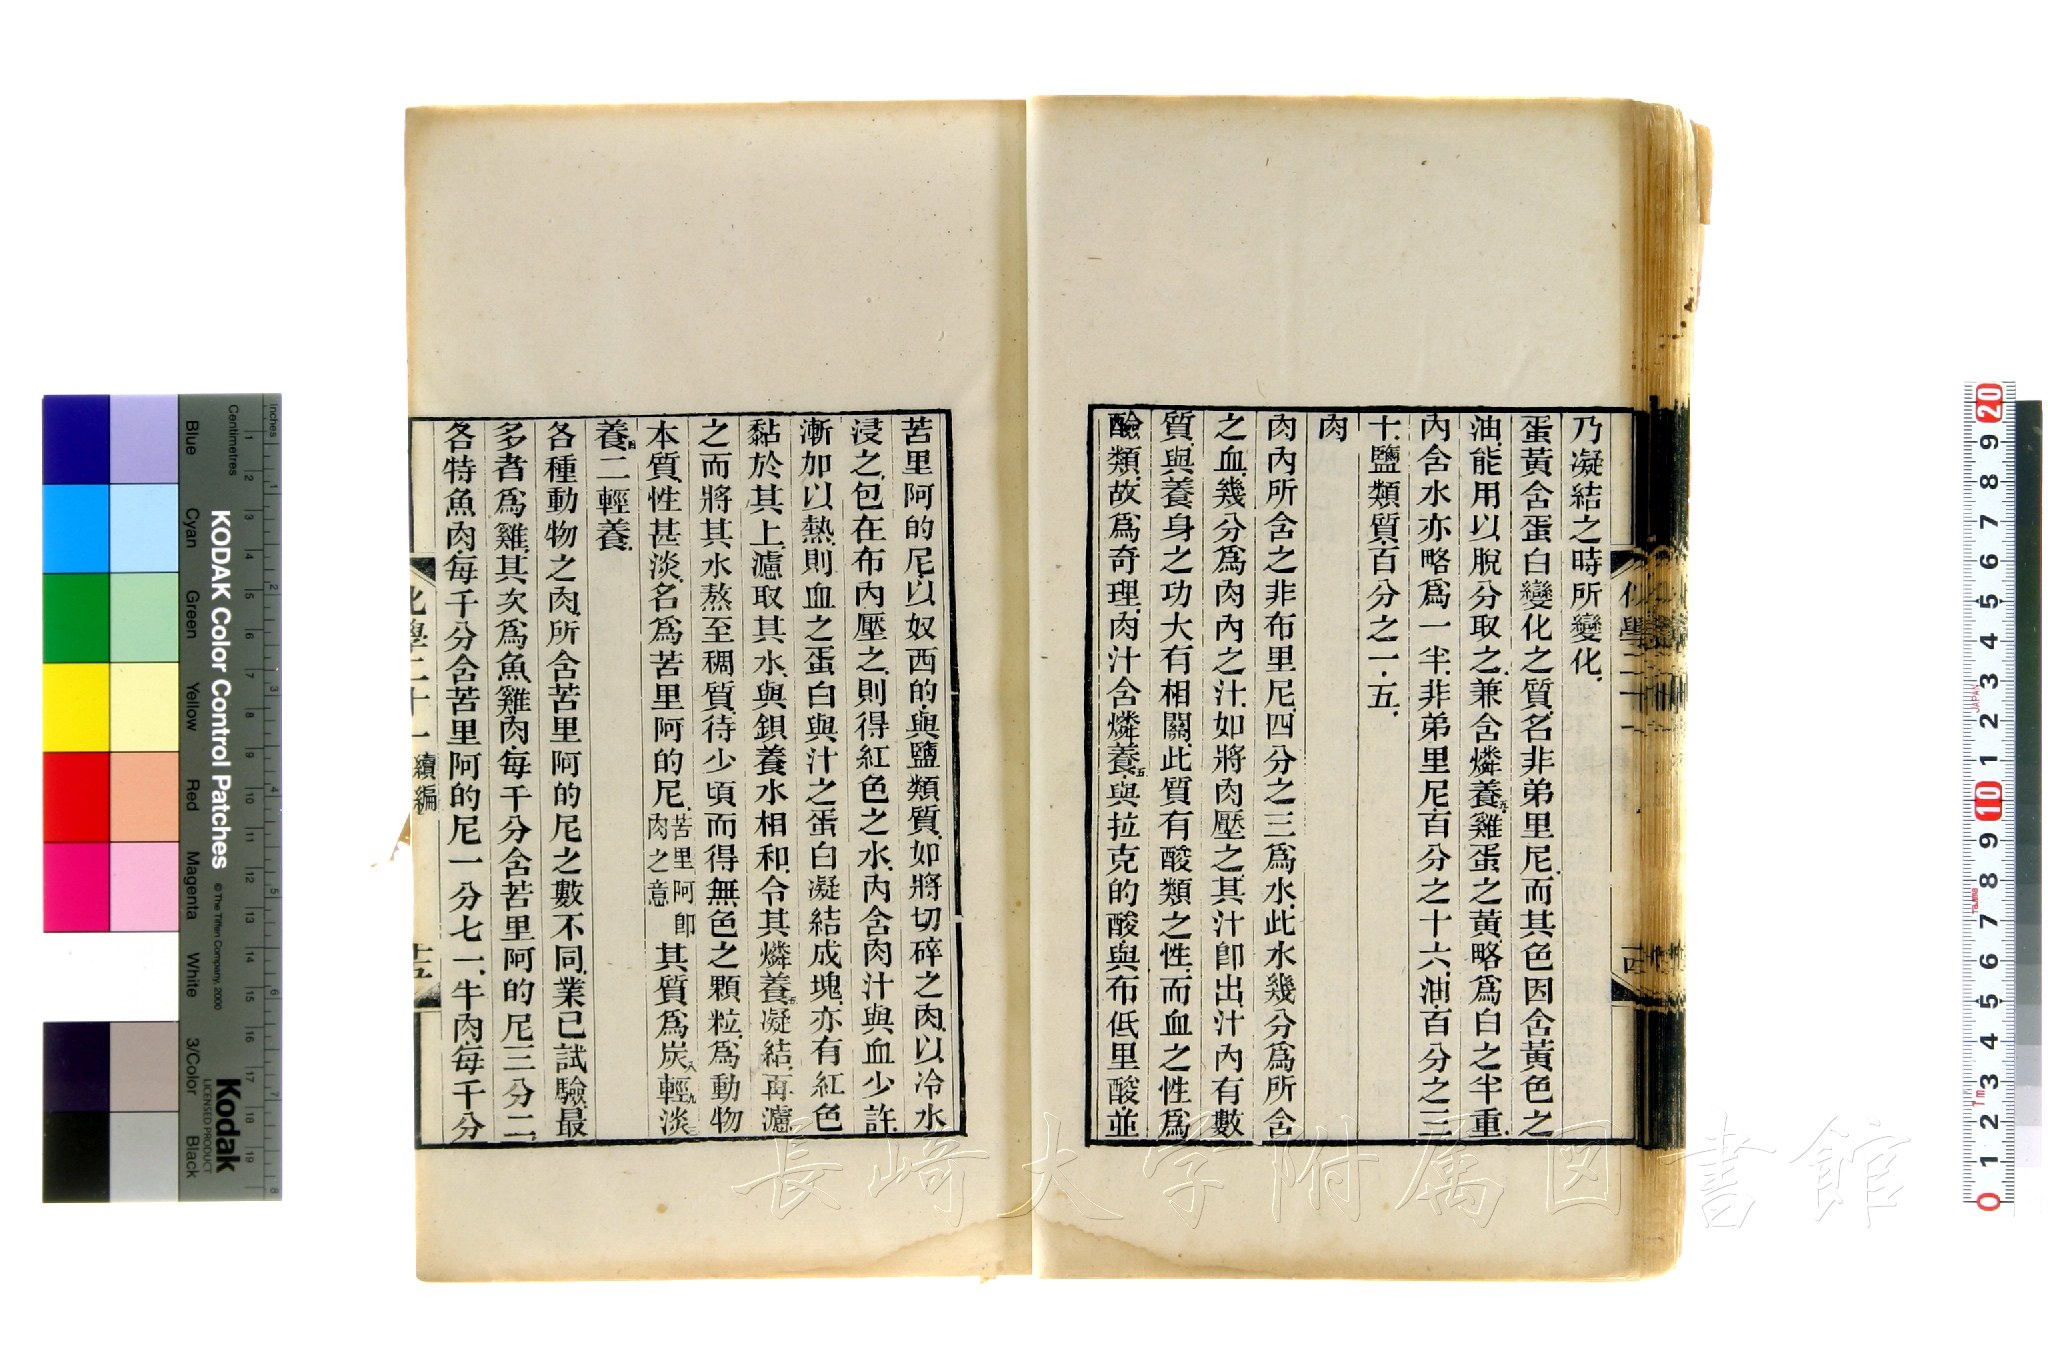 乃凝結之時所變化.
蛋黃含蛋白變化之質.名非弟里尼.而其色因含黃色之
油.能用以脫分取之.兼含燐養五.雞蛋之黃.略為白之半重.
內含水亦略為一半.非弟里尼.百分之十六.油.百分之三
十.鹽類質.百分之一.五.
肉
肉內所含之非布里尼.四分之三為水.此水幾分為所含
之血.幾分為肉內之汁.如將肉壓之.其汁即出.汁內有數
質.與養身之功大有相關.此質有酸類之性.而血之性為
鹼類.故為奇理.肉汁含燐養五.與拉克的酸.與布低里酸.並
苦里阿的尼.以奴西的.與鹽類質.如將切碎之肉.以冷水
浸之.包在布內壓之.則得紅色之水.內含肉汁與血少許.
漸加以熱.則血之蛋白與汁之蛋白凝結成塊.亦有紅色
黏於其上.濾取其水.與鋇養水相和.令其燐養五凝結.再濾
之而將其水熬至稠質.待少頃而得無色之顆粒.為動物
本質.性甚淡.名為苦里阿的尼.苦里阿即肉之意其質為炭八輕九淡三
養四二輕養.
各種動物之肉.所含苦里阿的尼之數不同.業已試驗.最
多者為雞.其次為魚.雞肉.每千分含苦里阿的尼三分二.
各特魚肉.每千分含苦里阿的尼一分七一.牛肉.每千分
化學二十一 續編
十五
化學二十一
十四
KODAK Color Control Patches
© The Tiffen Company, 2000
Kodak
LICENSED PRODUCT
Inches
Centimetres
Blue
Cyan
Green
Yellow
Red
Magenta
White
3/Color
Black
JAPAN
長崎大学附属図書館